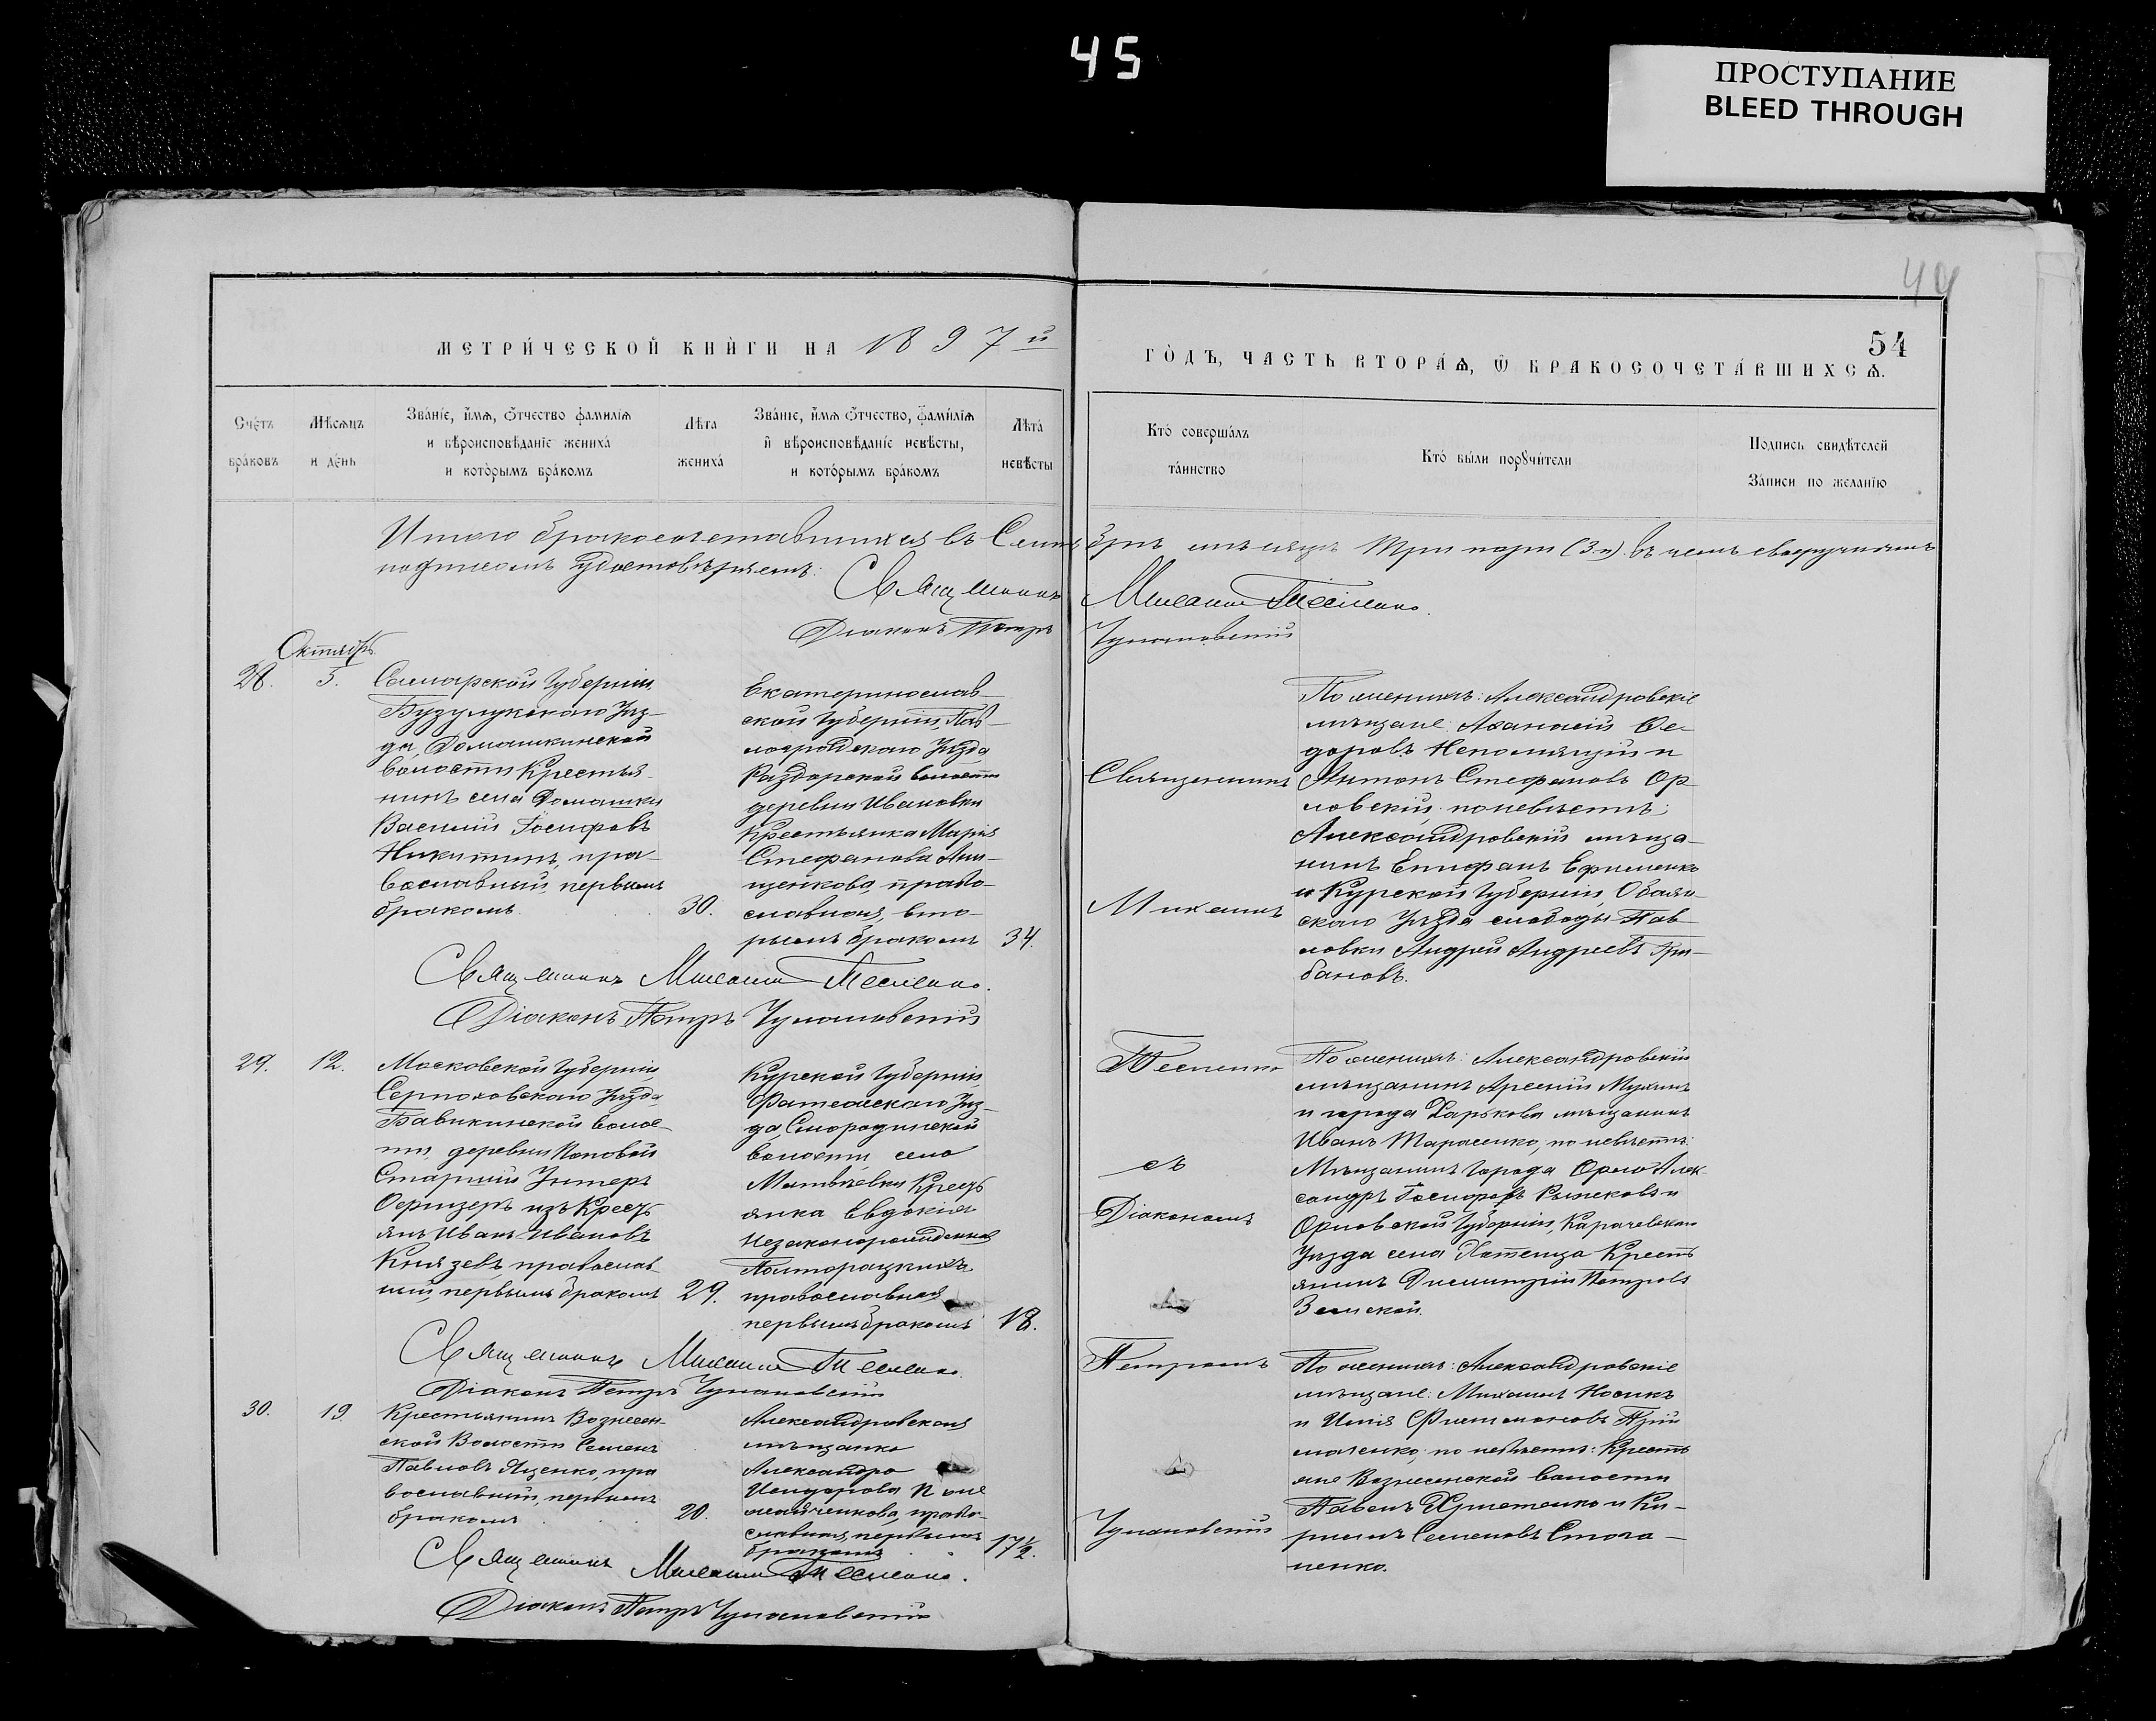 45
ПРОСТУПАНИЕ
BLEED THROUGH
44
54
МЕТРИ́ЧЕСКОЙ КНИ́ГИ НА 1897й
ГО́ДЪ, ЧАСТЬ ВТОРА́Ѧ, Ѿ БРАКОСОЧЕТА́ВШИХСѦ.
Сче́тъ
бра́ковъ
Мѣ́сѧцъ
и де́нь
Зва́нїе, и҆́мѧ, ѻ҆́тчество фами́лїѧ
и вѣроисповѣ́данїе жениха́
и кото́рымъ бра́комъ
Лѣ́та
жениха́
Зва́нїе, и҆́мѧ ѻ҆́тчество, фами́лїѧ
и҆ вѣроисповѣ́данїе невѣ́сты,
и кото́рымъ бра́комъ
Лѣта́
невѣ́сты
Кто́ соверша́лъ
та́инство
Кто́ бы́ли порꙋчи́тели
Подпись свидѣ́телей
За́писи по жела́нїю
Итого бракосочетавшихся въ Сентябрѣ мѣсяцѣ три пары (3 п.) въ чемъ своеручнымъ
подписомъ удостовѣряемъ:
Священникъ Михаилъ Тесленко.
Діаконъ Петръ Чумановскій
Октябрь
28. 5.
Самарской Губерніи
Бузулукскаго Уѣз-
да, Домашкинской
волости Крестья-
нинъ села Домашки
Василій Іосифовъ
Никитинъ, пра-
вославный, первымъ
бракомъ. 30.
Екатеринослав-
ской Губерніи, Пав-
лоградскаго Уѣзда
Раздорской волости
деревни Ивановки
Крестьянка Марія
Стефанова
щенкова, право-
славная, вто-
рымъ бракомъ 34.
Священникъ
Михаилъ
По женихѣ: Александровскіе
мѣщане: Аѳанасій Ѳе-
доровъ Непомнящій и
Антонъ Стефановъ Ор-
ловскій; по невѣстѣ:
Александровскій мѣща-
нинъ Епифанъ Ефименко
и Курской Губерніи, Обоян-
скаго Уѣзда слободы Пав-
ловки Андрей Андреевъ Гри-
бановъ.
Священникъ Михаилъ Тесленко.
Діаконъ Петръ Чумановскій
29. 12.
Московской Губерніи,
Серпоховскаго Уѣзда,
Бавыкинской волос-
ти, деревни Поповой
Старшій Унтеръ
Офицеръ изъ Крест
янъ Иванъ Ивановъ
Князевъ, православ
ный, первымъ бракомъ 29.
Курской Губерніи,
Фатежскаго Уѣз-
да, Смородинской
волости, села
Матвѣевки Крест
янка Евдокія
Незаконорожденная
Полторацкихъ,
православная
первымъ бракомъ 18.
Тесленко
съ
Діакономъ
По женихѣ: Александровскій
мѣщанинъ Арсеній Мухинъ
и города Харькова мѣщанинъ
Иванъ Тарасенко; по невѣстѣ:
Мѣщанинъ города Орла Алек-
сандръ Іосифовъ и
Орловской Губерніи, Карачевскаго
Уѣзда села Хотенца Крест
янинъ Димитрій Петровъ
Земской.
Священникъ Михаилъ Тесленко.
Діаконъ Петръ Чумановскій
30. 19.
Крестьянинъ Вознесен-
ской Волости Семенъ
Павловъ Яценко, пра
вославный, первымъ
бракомъ. 20.
Александровская
мѣщанка
Александра
православная, первымъ
бракомъ 17½.
Петромъ
Чумановскій
По женихѣ: Александровскіе
мѣщане: Михаилъ Носикъ
и Илія Филимоновъ
по невѣстѣ: Крестъ
яне Вознесенской волости
Павелъ Христенко и Ки-
риллъ Семеновъ
ненко.
Священникъ Михаилъ Тесленко.
Діаконъ Петръ Чумановскій